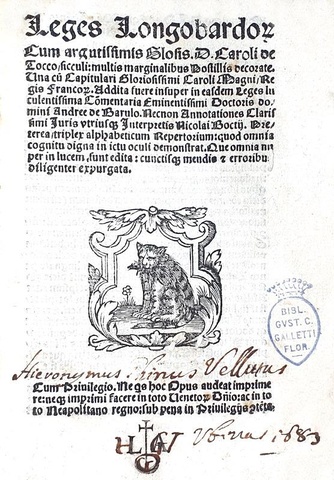 Leges Longobardoꝝ
Cum argutissimis Glosis. D. Caroli de
Tocco siculi: multis marginalibus Postillis decorate.
Una cū Capitulari Gloriosissimi Caroli Magni Re
gis Francoꝝ. Addita fuere insuper in easdem Leges lu
culentissima Cōmentaria Eminentissimi Doctoris do
mini Andree de Barulo. Necnon Annotationes Clarif
simi Juris vtriusqꝫ Interpretis Nicolai Boctij. Pre
terea triplex alphabeticum Repertorium: quod omnia
cognitu digna in ictu oculi demonstrat. Que omnia nu
per in lucem sunt edita: cunctisqꝫ mendis & erroribus
diligenter expurgata.
BIBL.
GVST. C.
GALLETTI
FLOR.
Hieronymus Vellutus
Cum Priuilegio. Ne qs hoc Opus audeat imprime
re: neqꝫ imprimi facere in toto Veneto Dn̄io: ac in to
to Neapolitano regno: sub pena in Priuilegijs
1683